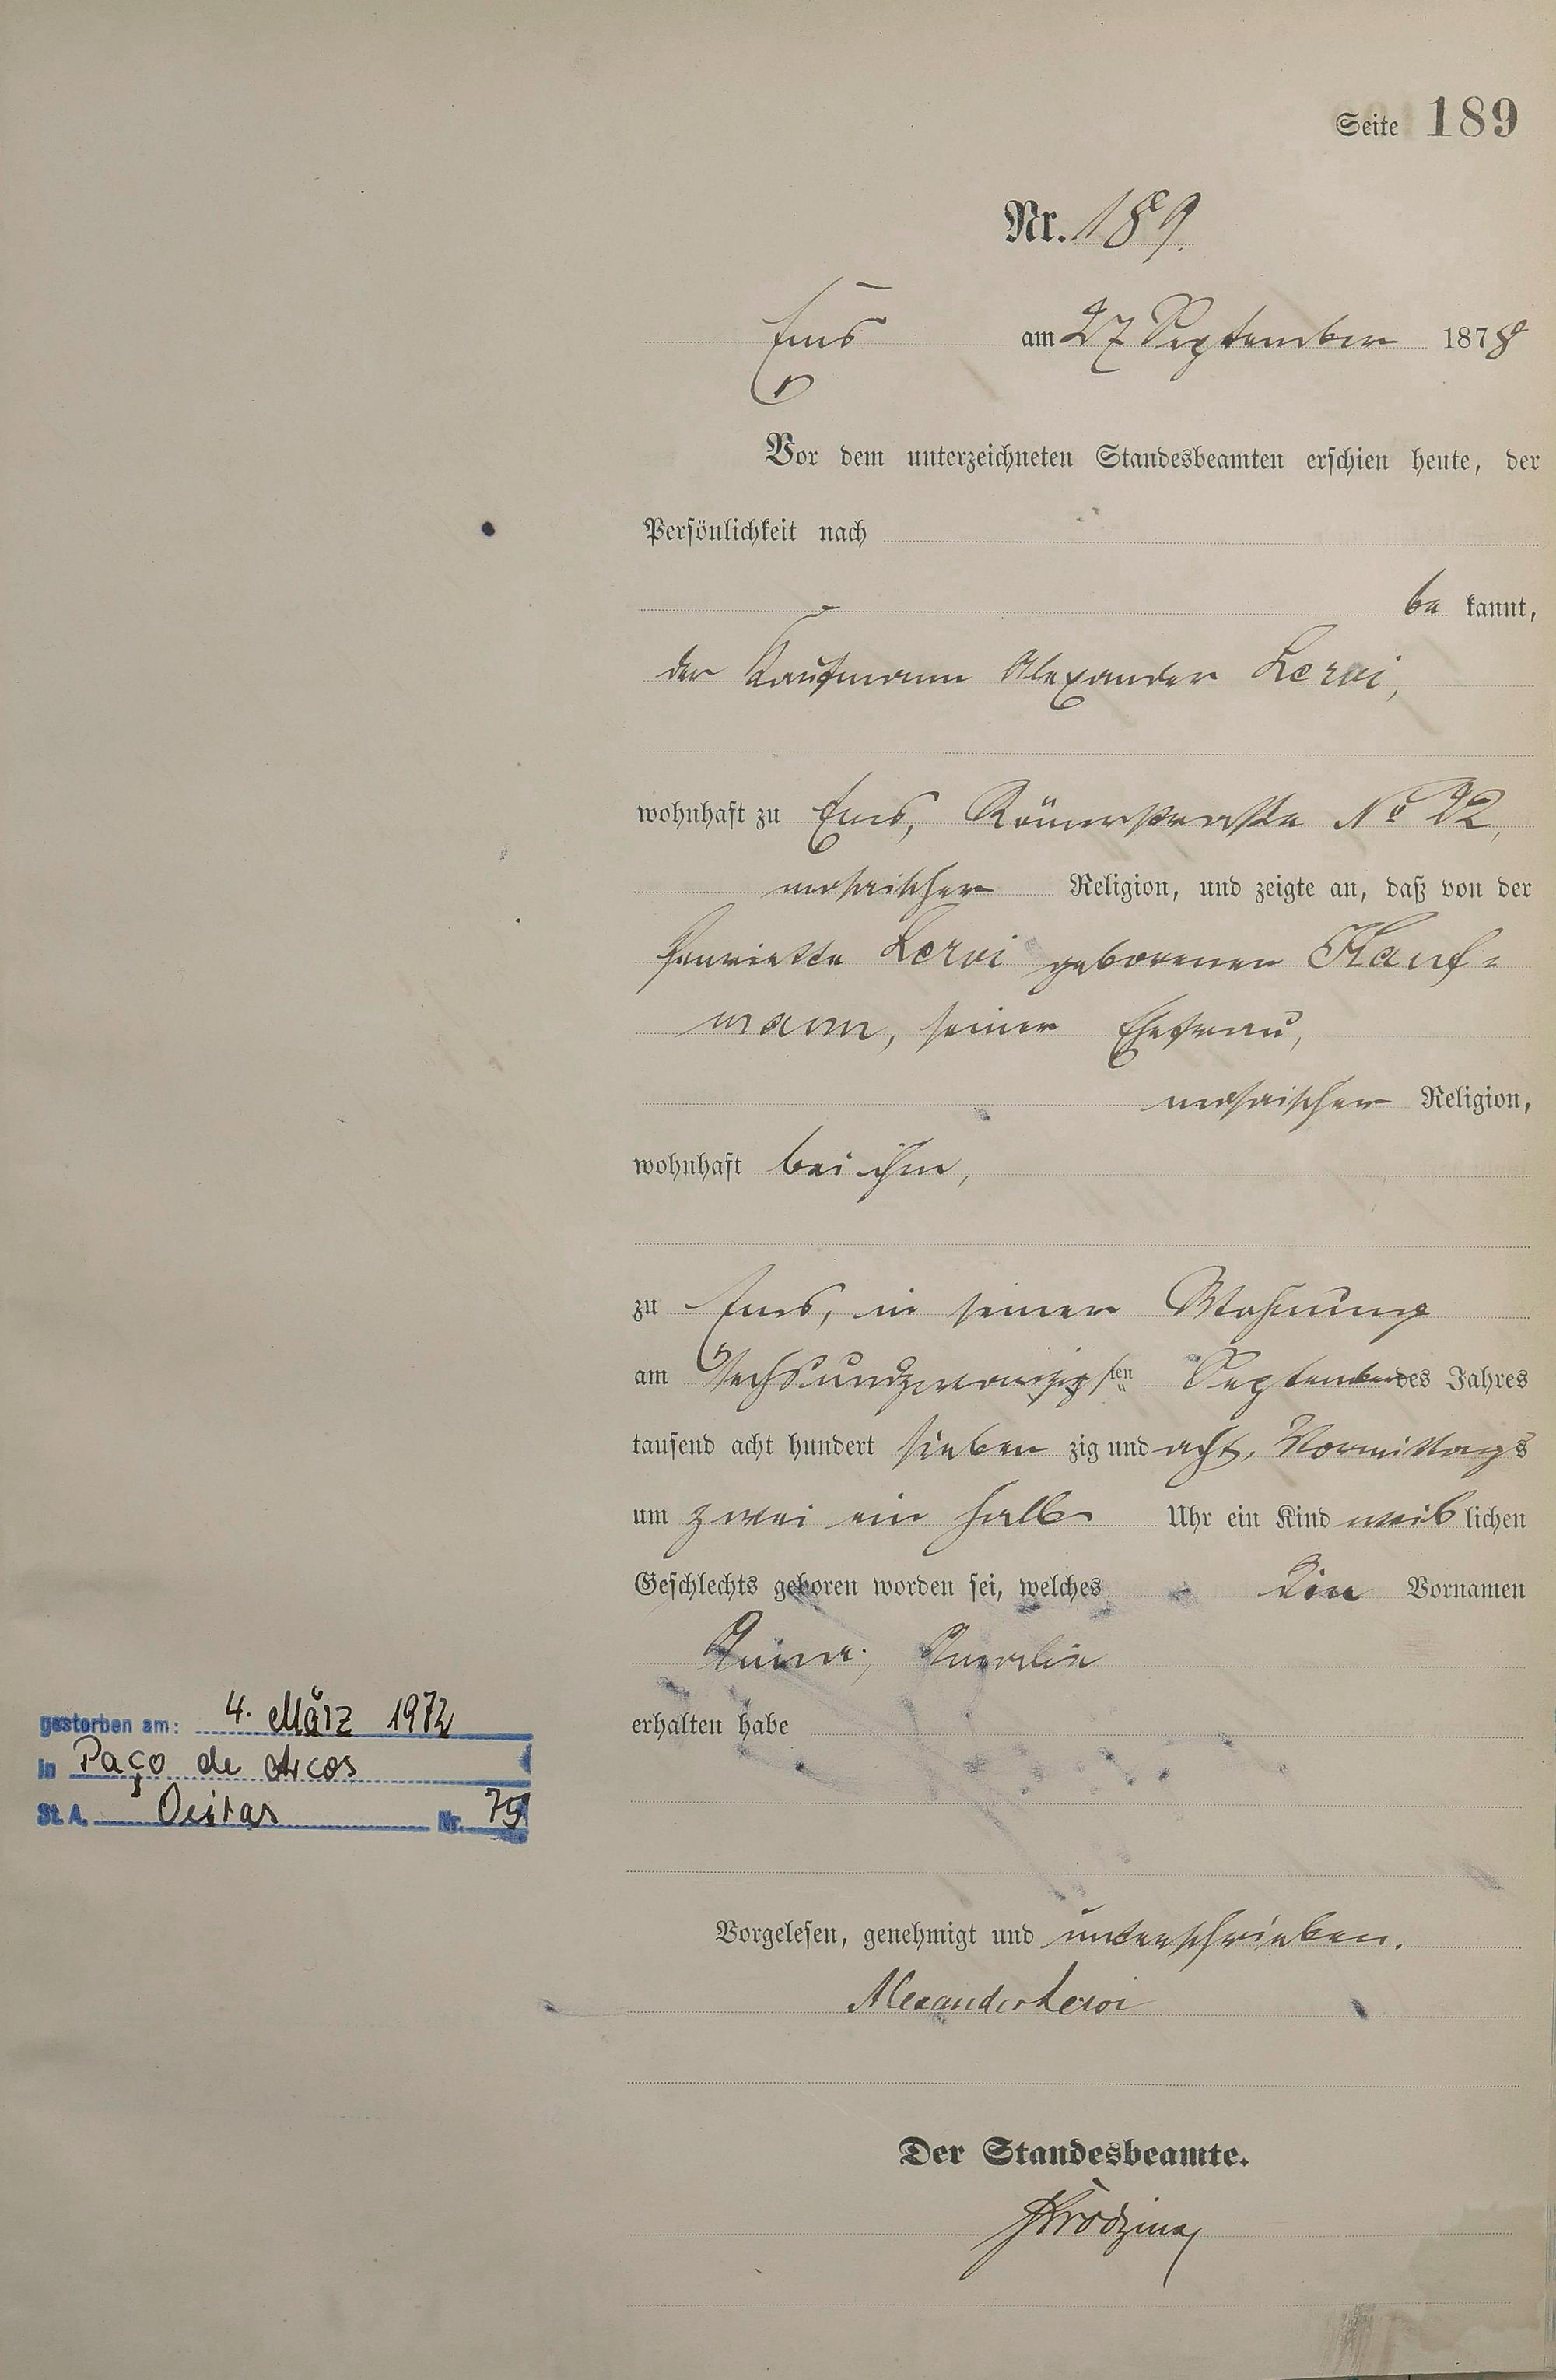 Seite 189
Nr. 189.
Ems am 27 September 1878
Vor dem unterzeichneten Standesbeamten erschien heute, der
Persönlichkeit nach
be kannt,
der Kaufmann Alexander Leroi,
wohnhaft zu Ems, Römerstraße No 22,
mosaischer Religion, und zeigte an, daß von der
Henriette Leroi geborenen Kauf=
mann, seiner Ehefrau,
mosaischer Religion,
wohnhaft bei ihm,
zu Ems, in seiner Wohnung
am sechsundzwanzigsten September des Jahres
tausend acht hundert sieben zig und acht, Vormittags
um zwei ein halb Uhr ein Kind weib lichen
Geschlechts geboren worden sei, welches die Vornamen
erhalten habe
gestorben am: 4. März 1972
in Paço de Arcos
St. A. Oeiras Nr. 79
Vorgelesen, genehmigt und unterschrieben.
Alexander Leroi
Der Standesbeamte.